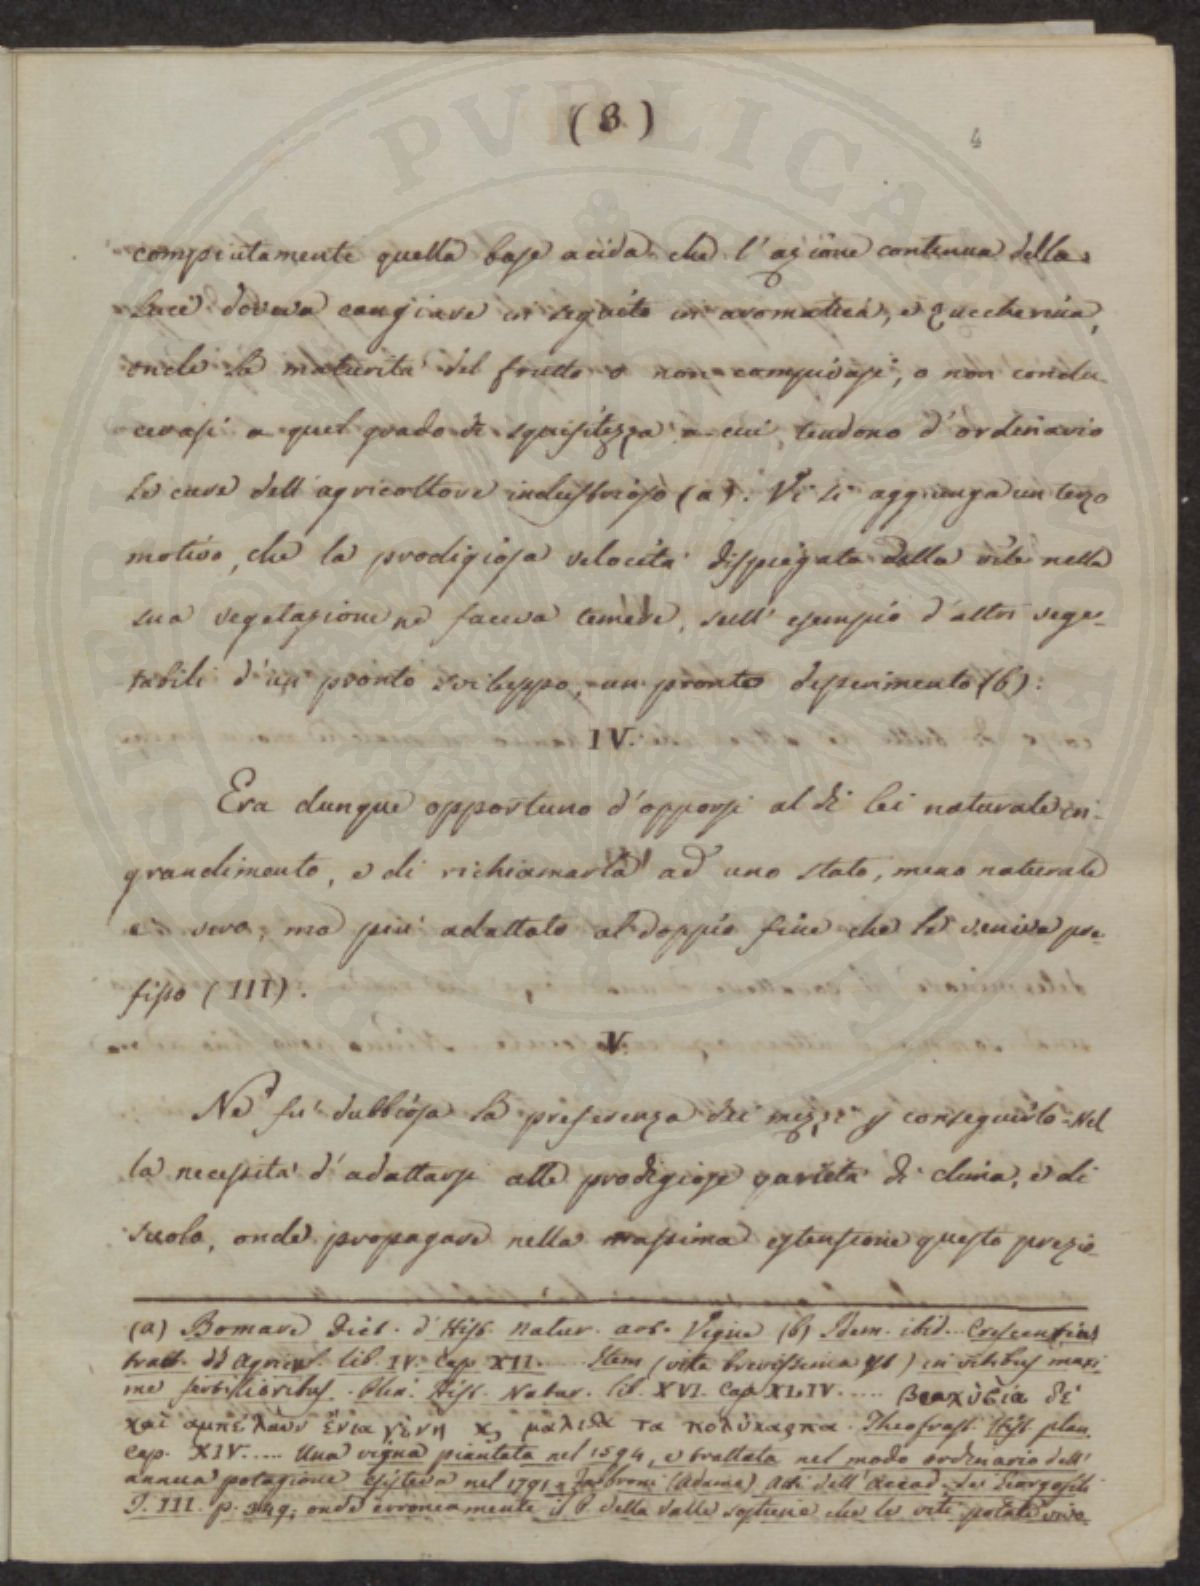 (8)
4
compiutamente quella base acida che l'azione continua della
luce doveva cangiare in seguito in aromatica, e zuccherina,
onde la maturità del frutto o non compivasi, o non condu
cevasi a quel grado di squisitezza a cui tendono d'ordinario
le cure dell'agricoltore industrioso (a). Vi si aggiunga un terzo
motivo, che la prodigiosa velocità dispiegata dalla vite nella
sua vegetazione ne faceva temere, sull'esempio d'altri vege-
tabili d'un pronto sviluppo, un pronto deperimento (b).
IV.
Era dunque opportuno d'opporsi al di lei naturale in-
grandimento, e di richiamarla ad uno stato, meno naturale
è vero, ma più adattato al doppio fine che le veniva pre-
fisso (III).
V.
Ne fù dubbiosa la preferenza dei mezzi p conseguirlo. Nel
la necessità d'adattarsi alle prodigiose varietà di clima, e di
suolo, onde propagare nella massima estensione questo prezio
(a) Bomare Dict. d'Hist. natur. art. Vigne (b) Idem. ibid. Crescentius
tratt. di Agricol. lib. IV. Cap. XII..... Item (vita brevissima est) in vitibus maxi
me fertilioribus. Plin. Hist. Natur. lib. XVI. Cap. XLIV..... Βραχύβια δέ
καὶ αμπέλων ἔνια γένη κ, μάλιστα τα πολύκαρπα. Theofrast. Hist. plan.
Cap. XIV..... Una vigna piantata nel 1594, e trattata nel modo ordinario dell'
annua potagione esisteva nel 1791 = Fabbroni (Adamo) Atti dell'Accad. dei Georgofili
T. III. p. 349; onde erroneamente il P. della Valle sostiene che le viti potate vivo-